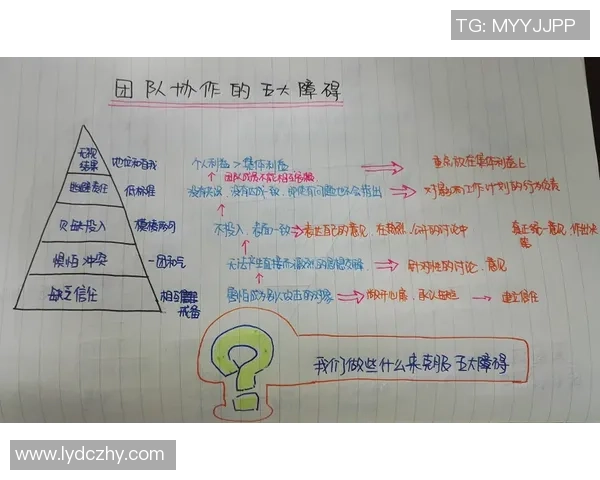 TG: MYYJJPP
团队协作的五大障碍
无视结果 地位和自我 个人利益 > 集体利益 重点放在集体利益上
团队成员不能相互
逃避责任 低标准 对影响工作计划的行为负责
欠缺投入 模棱两可 不投入，表面一致 表达自己的意见，在激烈、公开的讨论中 真正统一意见，作出决策
惧怕冲突 一团和气 无法产生直接而激烈的思想交锋 针对性的讨论、意见
缺乏信任 相互戒备 害怕成为别人攻击的对象 敞开心扉，承认 建立信任
我们做些什么来克服五大障碍
www.lydczhy.com